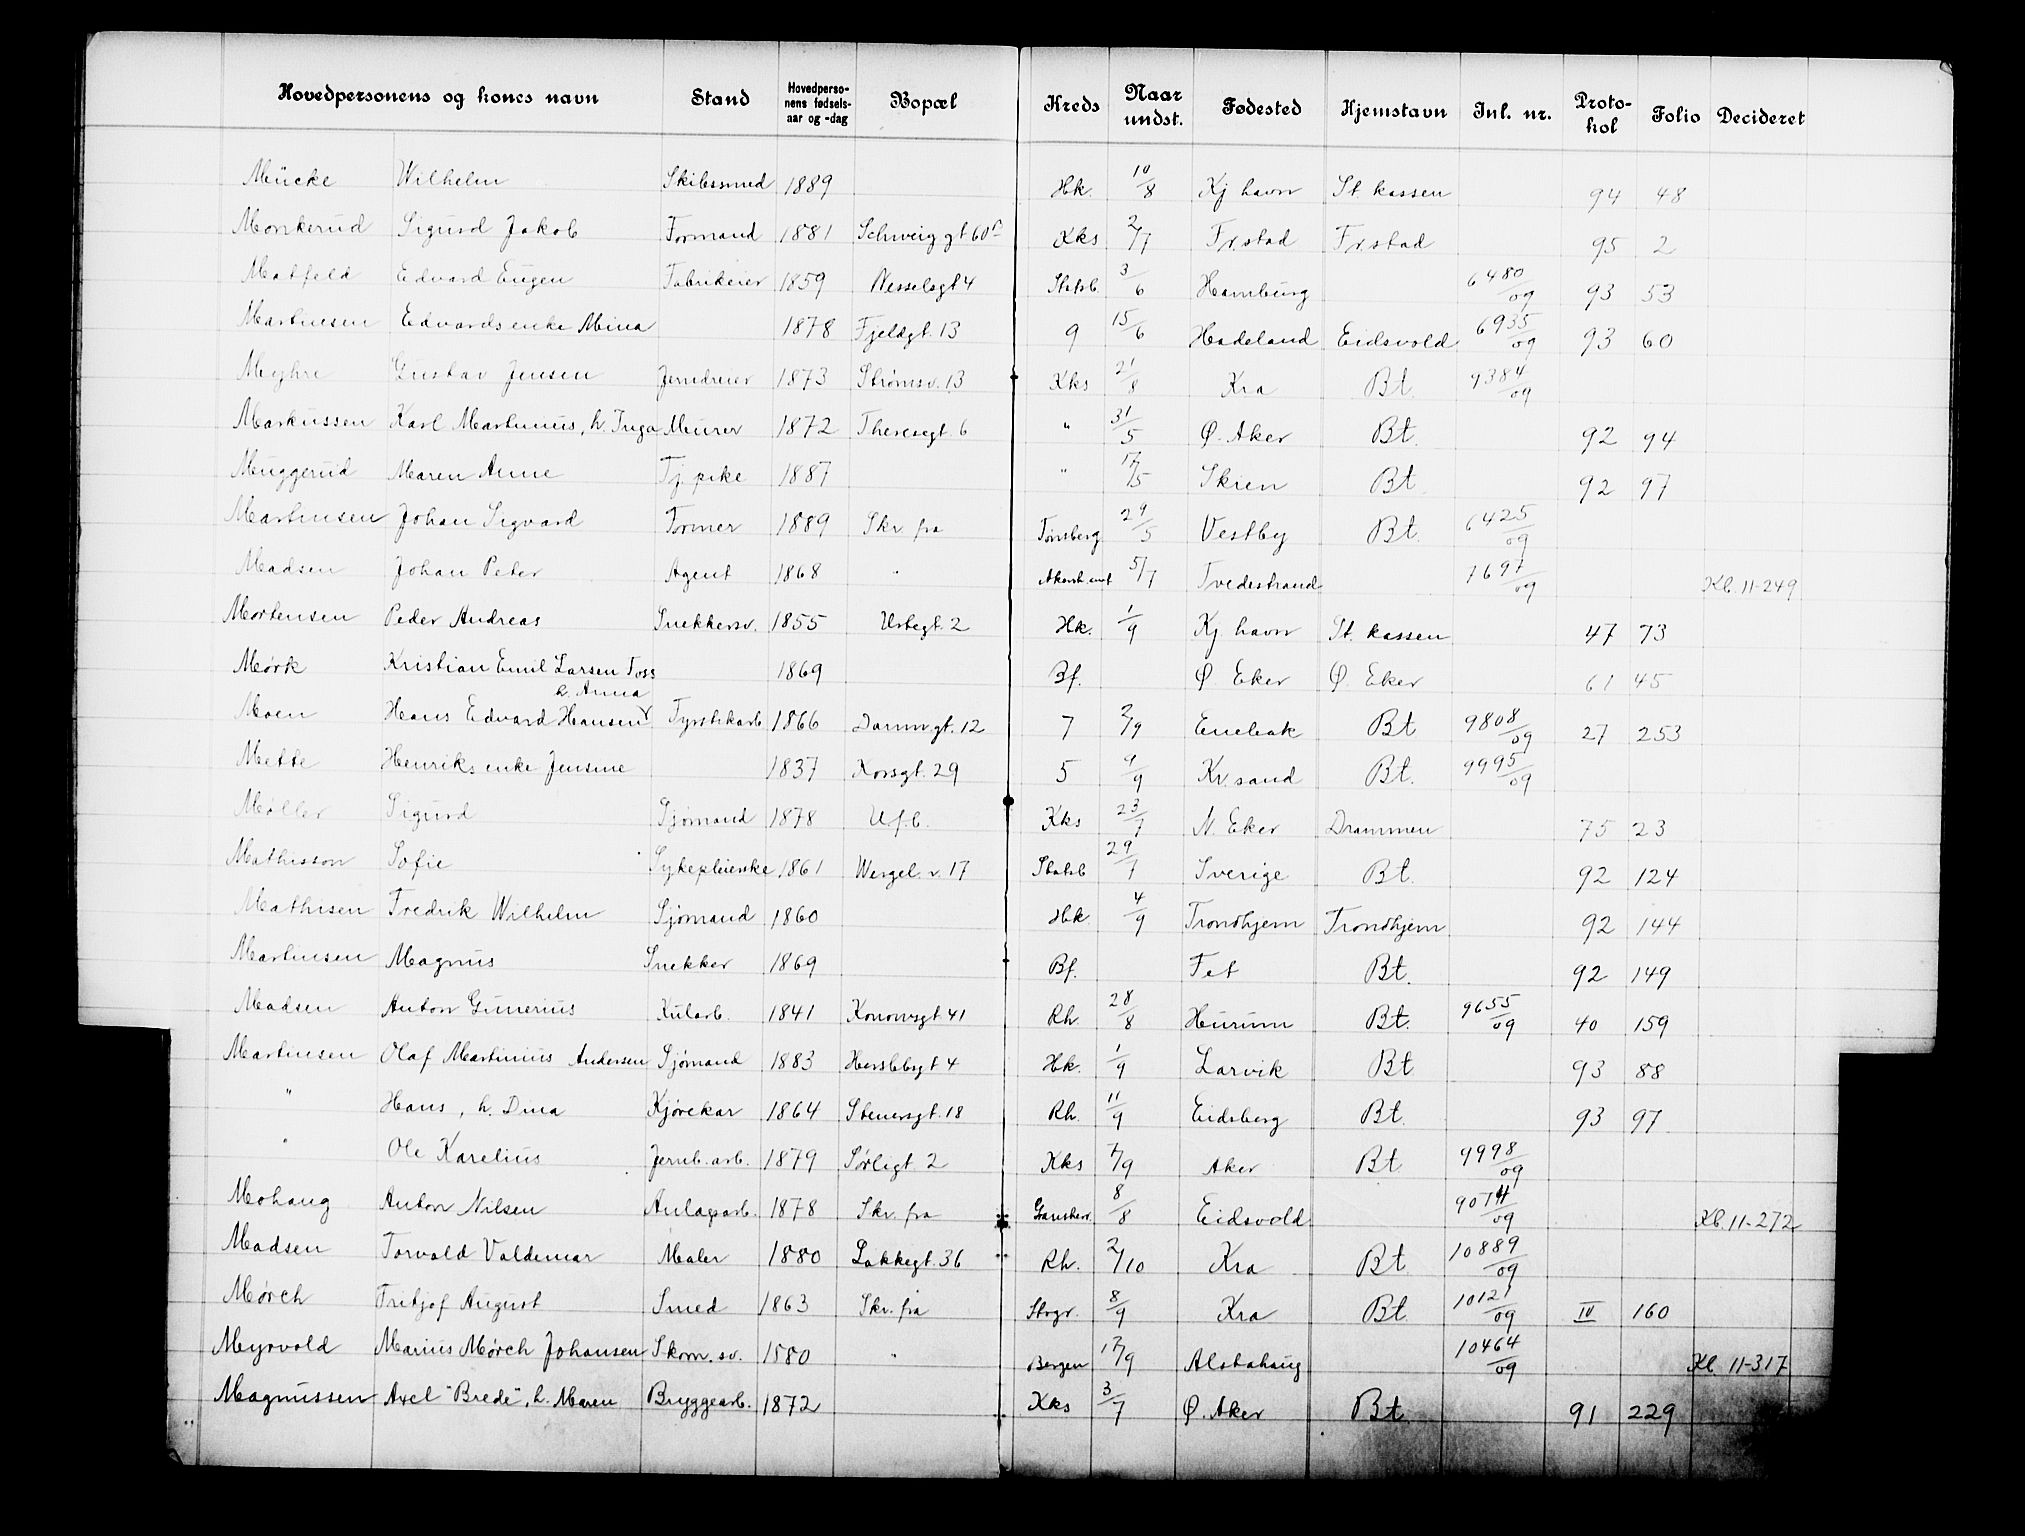 Hovedpersonens og kones navn Stand Hovedperso- nens fødsels- aar og -dag Bopæl Kreds Naar undst. Fødested Hjemstavn Inl. nr. Proto- kol Folio Decideret
Mücke Wilhelm Skibssmed 1889 Hk. 10/8 Kj havn St. kassen 94 48
Monkerud Sigurd Jakob Formand 1881 Schweiggt 60 Kks 2/7 Fr.stad Fr.stad 95 2
Matfeld Edvard Eugen Fabrikeier 1859 Nesselsgt 4 Statsb. 3/6 Hamburg 6480/09 93 53
Martinsen Edvards enke Mina 1878 Fjeldgt. 13 9 15/6 Hadeland Eidsvold 6935/09 93 60
Myhre Gustav Jensen Jerndreier 1873 Strømsv. 13 Kks 21/8 Kra Bt. 9384/09
Markussen Karl Martinius, h. Inga Murer 1872 Theresegt 6 " 31/5 Ø. Aker Bt. 92 94
Muggerud Maren Anne Tj. pike 1887 " 17/5 Skien Bt. 92 97
Martinsen Johan Sigvard Former 1889 Skr. fra Tønsberg 29/5 Vestby Bt. 6425/09
Madsen Johan Peter Agent 1868 " Akersh. amt 5/7 Tvedestrand 7697/09 Kb. 11-249
Mortensen Peder Andreas Snekkersv. 1855 Urtegt. 2 Hk. 1/9 Kj havn St. kassen 47 73
Mørk Kristian Emil Larsen Foss 1869 Bf. Ø. Eker Ø. Eker 61 45
h. Anna
Moen Hans Edvard Hansen Fyrstikarb. 1866 Danm.gt. 12 7 2/9 Enebak Bt 9808/09 27 253
Mette Henriks enke Jensine 1837 Korsgt. 29 5 9/9 Kr.sand Bt. 9995/09
Møller Sigurd Sjømand 1878 U.f.b. Kks 23/7 N. Eker Drammen 75 23
Mathisson Sofie Sykepleierske 1861 Wergel. v. 17 Statsb 29/7 Sverige Bt. 92 124
Mathisen Fredrik Wilhelm Sjømand 1860 Hk 4/9 Trondhjem Trondhjem 92 144
Martinsen Magnus Snekker 1869 Bf. Fet Bt. 92 149
Madsen Anton Gunerius Kularb. 1841 Konowsgt 41 Rh. 28/8 Hurum Bt. 9655/09 40 159
Martinsen Olaf Martinius Andersen Sjømand 1883 Herslebsgt 4 Hk. 1/9 Larvik Bt 93 88
" Hans, h. Dina Kjørekar 1864 Stenersgt. 18 Rh. 11/9 Eidsberg Bt. 93 97
" Ole Karelius Jernb. arb. 1879 Sørligt 2 Kks 7/9 Aker Bt 9998/09
Mohaug Anton Nilsen Anlægsarb. 1878 Skr. fra 8/8 Eidsvold 9074/09 Kb. 11-272
Madsen Torvald Valdemar Maler 1880 Lakkegt. 36 Rh. 2/10 Kra Bt 10889/09
Mørch Fritjof August Smed 1863 Skr. fra 8/9 Kra Bt 10121/09 IV 160
Myrvold Marius Mørch Johansen Skom. sv. 1880 " Bergen 17/9 Alstahaug 10464/09 Kb. 11-317
Magnussen Axel "Brede", h. Maren Bryggearb. 1872 Kks 3/7 Ø. Aker Bt 91 229